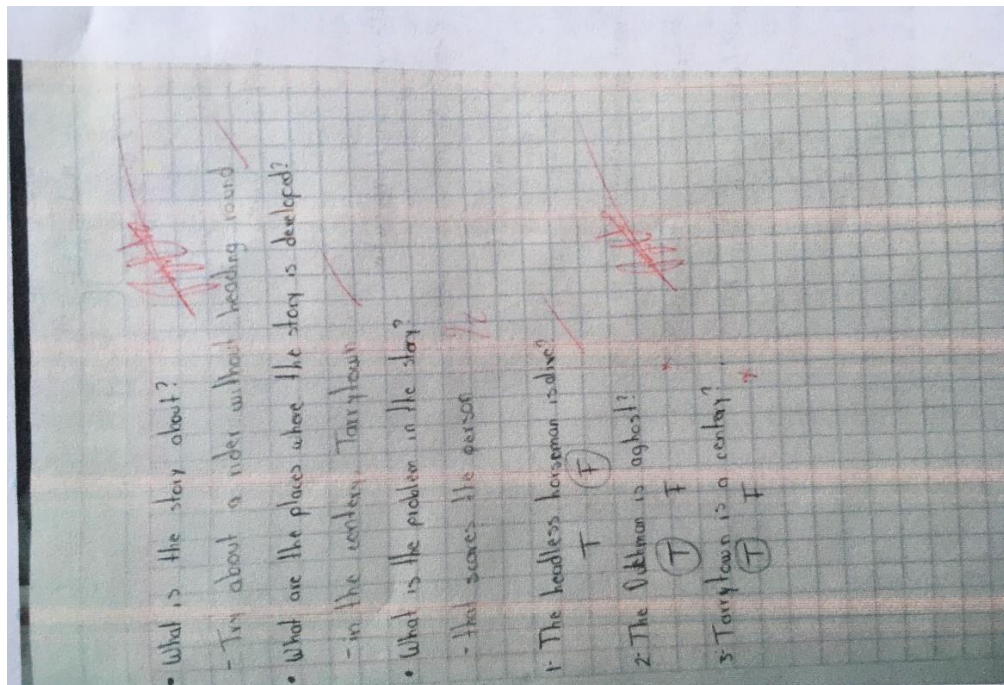 • What is the story about?
- Try about a rider without heading round
• What are the places where the story is developed?
- in the centery, Tarrytown
• What is the problem in the story?
- that scares the person
1- The headless horseman is alive?
T F
2- The Dutchman is aghost?
T F
3- Tarrytown is a centery?
T F